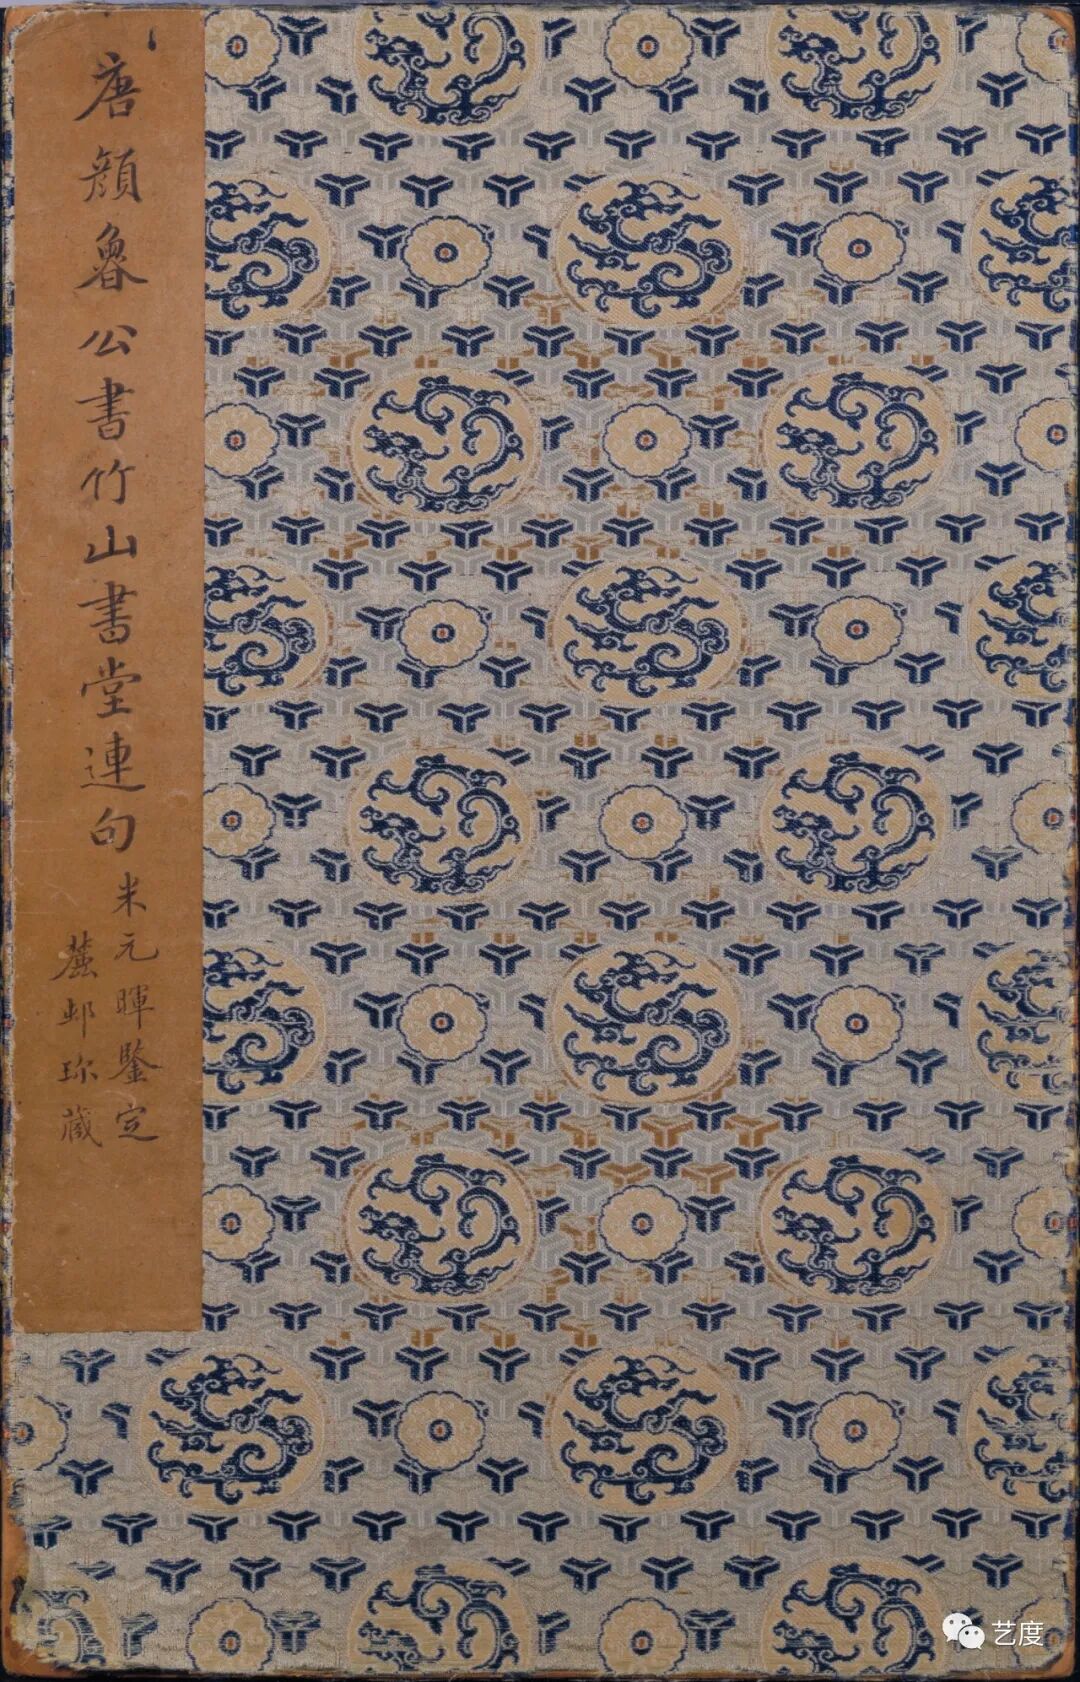 唐顔魯公書竹山書堂連句
米元暉鑒定
麓邨珎藏
艺度